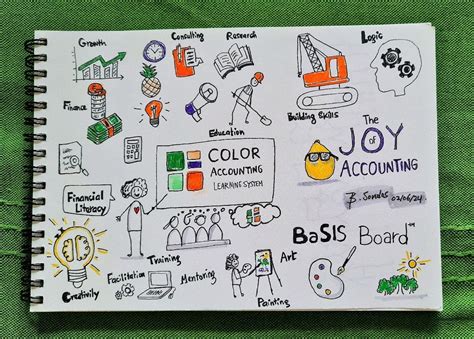 Growth
Consulting
Research
Logic
Finance
Building Skills
Education
The
JOY
of
ACCOUNTING
COLOR
ACCOUNTING
LEARNING SYSTEM
Financial
Literacy
B. Sondas 02/06/24
BaSIS Board™
Training
Facilitation
Mentoring
Art
Creativity
Painting